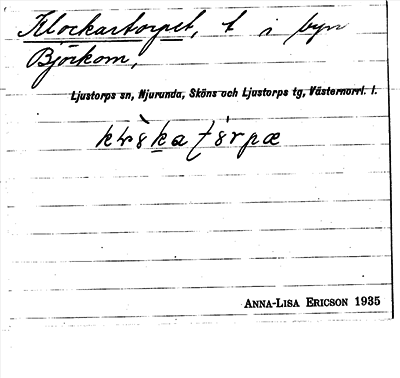 Klockartorpet, t i byn
Björkom,
Ljustorps sn, Njurunda, Sköns och Ljustorps tg, Västernorrl. l.
ANNA-LISA ERICSON 1935